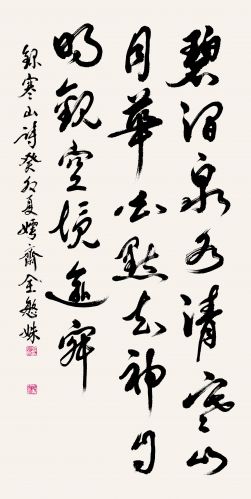 碧澗泉水清寒山
月華白默知神自
明觀空境逾寂
錄寒山詩癸卯夏齋金姝